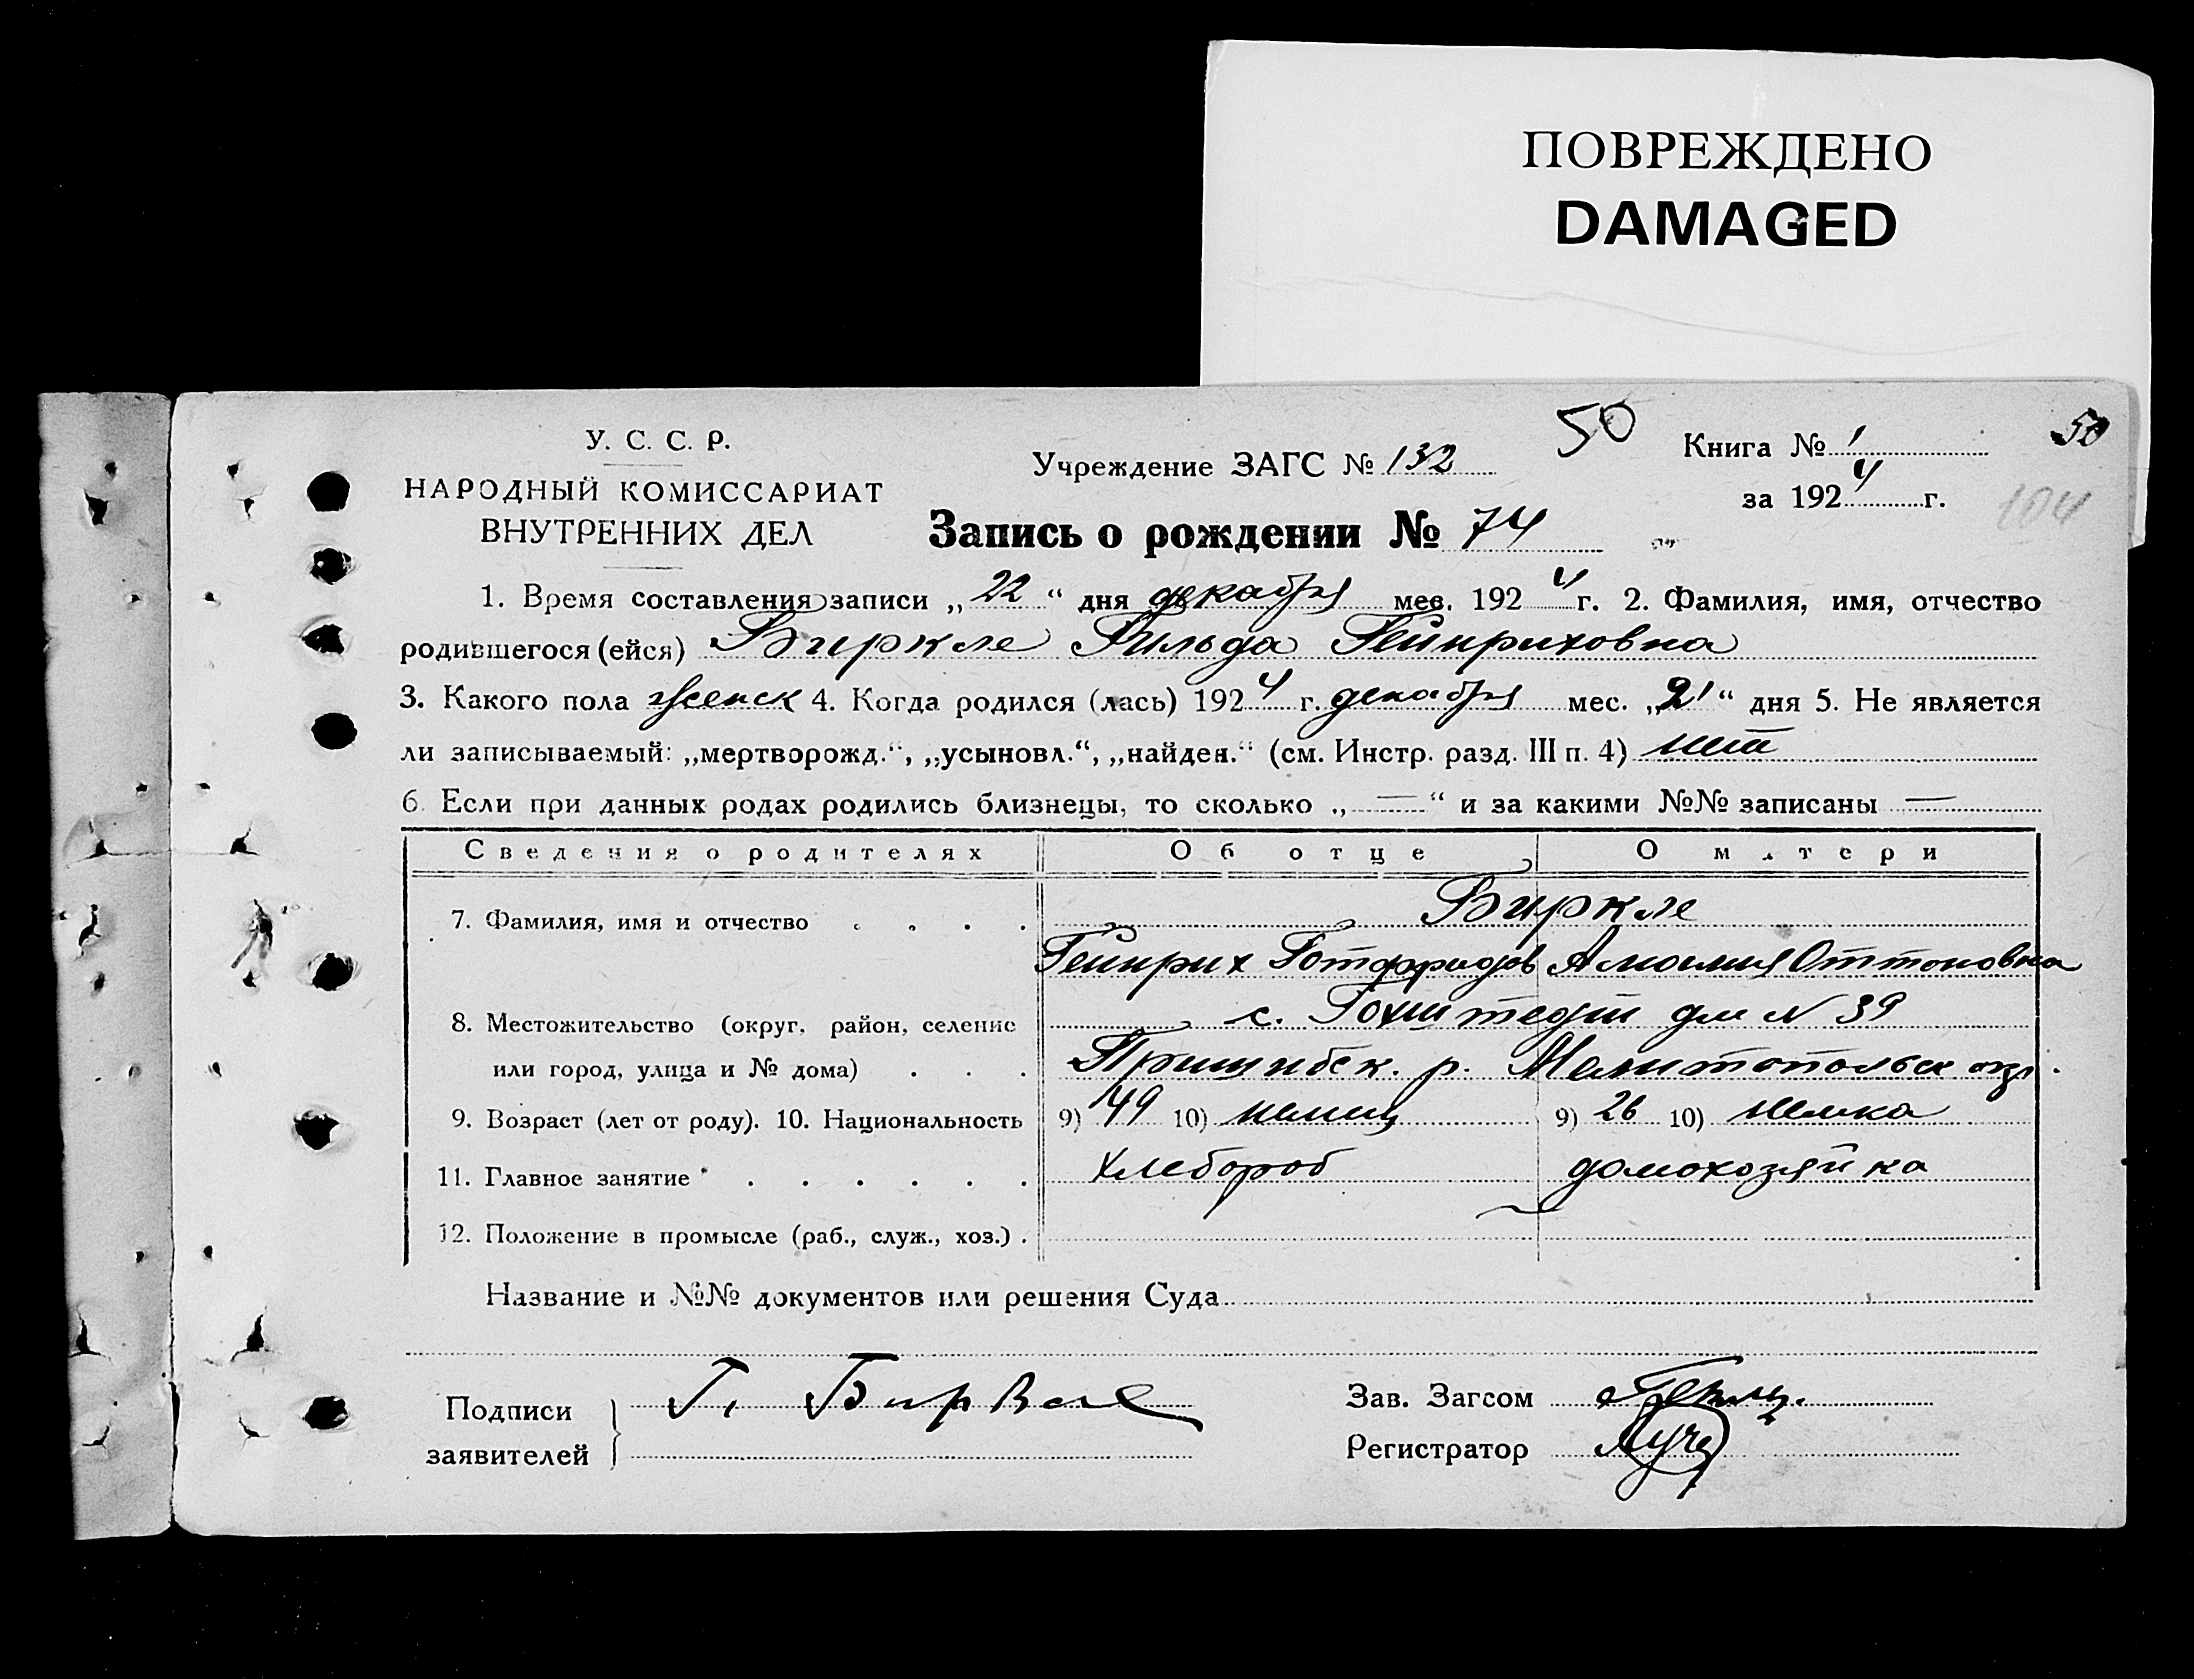 ПОВРЕЖДЕНО
DAMAGED
У. С. С. Р.
НАРОДНЫЙ КОМИССАРИАТ
ВНУТРЕННИХ ДЕЛ
Учреждение ЗАГС № 132
50
Книга № 1
50
за 1924 г.
104
Запись о рождении № 74
1. Время составления записи „ 22 “ дня декабря мес. 1924 г. 2. Фамилия, имя, отчество
родившегося (ейся) Биркле Гильда Гейнриховна
3. Какого пола женск 4. Когда родился (лась) 1924 г. декабря мес. „ 21 “ дня 5. Не является
ли записываемый: „мертворожд.“, „усыновл.“, „найден.“ (см. Инстр. разд. III п. 4) нет
6. Если при данных родах родились близнецы, то сколько „ — “ и за какими №№ записаны —
Сведения о родителях Об отце О матери
7. Фамилия, имя и отчество . . . . Биркле
Гейнрих Готфридов Амалия Оттоновна
8. Местожительство (округ, район, селение с. Гохштедт дм N 39
или город, улица и № дома) . . . Пришибск. р. Мелитопольск окр.
9. Возраст (лет от роду). 10. Национальность 9) 49 10) немец 9) 26 10) немка
11. Главное занятие . . . . . . хлебороб домохозяйка
12. Положение в промысле (раб., служ., хоз.) .
Название и №№ документов или решения Суда
Подписи заявителей } Г. Биркле
Зав. Загсом
Регистратор